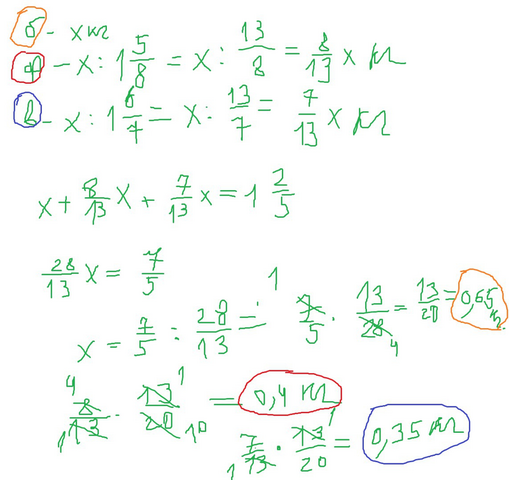 б - x кг
ф - x : 1 5/8 = x : 13/8 = 8/13 x кг
в - x : 1 6/7 = x : 13/7 = 7/13 x кг
x + 8/13 x + 7/13 x = 1 2/5
28/13 x = 7/5
x = 7/5 : 28/13 = 1 7/5 · 13/28 4 = 13/20 = 0,65 кг
4 8/13 1 · 13/20 1 10 = 0,4 кг
7/13 1 · 13/20 1 = 0,35 кг